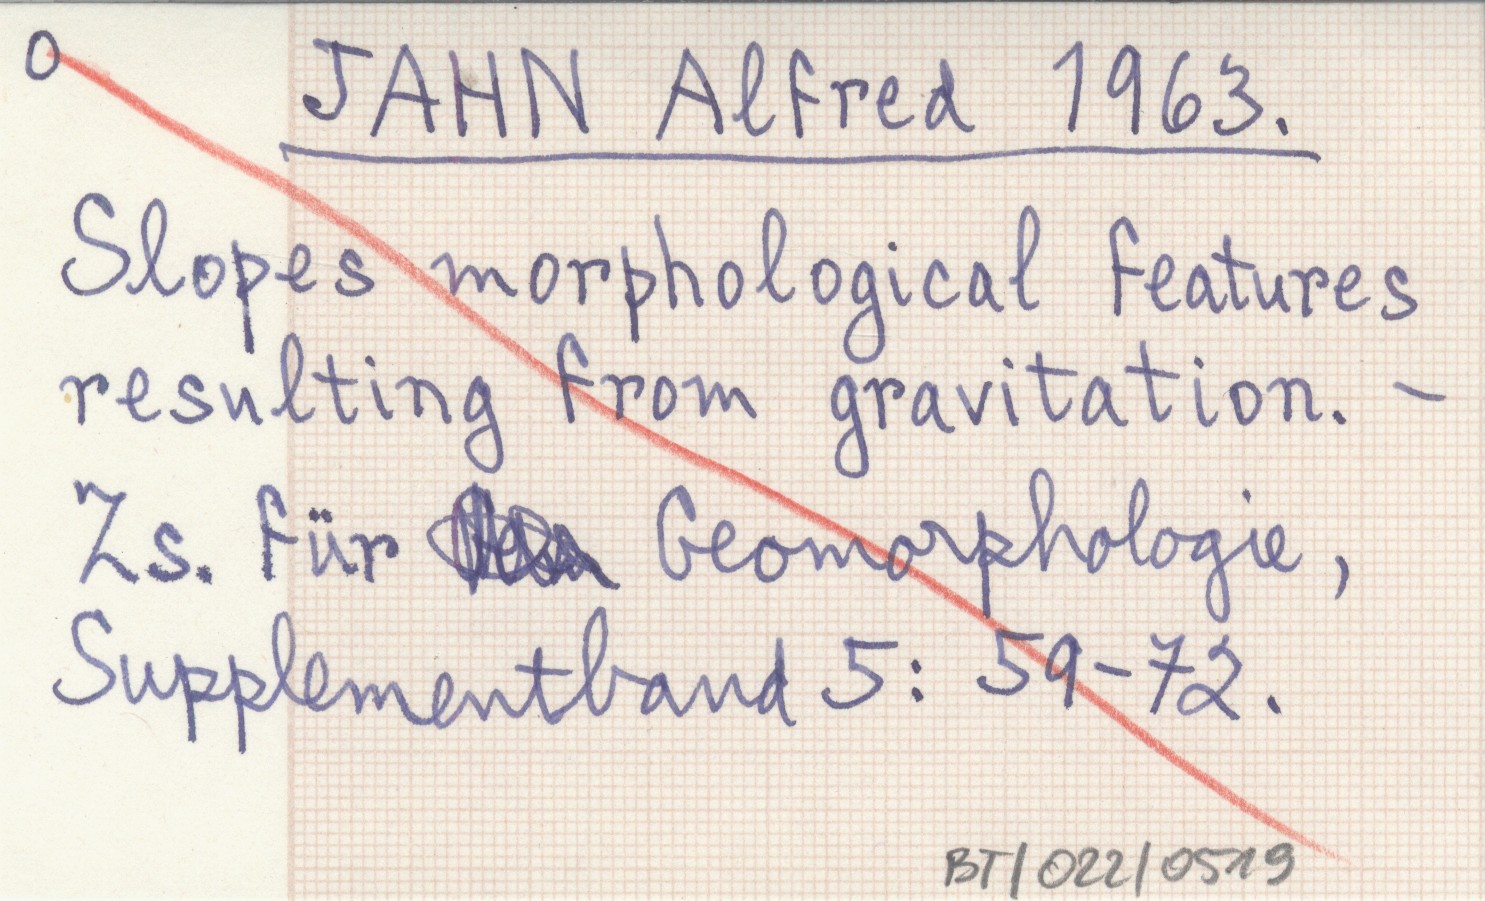 O JAHN Alfred 1963.
Slopes morphological features
resulting from gravitation. -
Zs. für Geomorphologie,
Supplementband 5: 59-72.
BT/022/0519